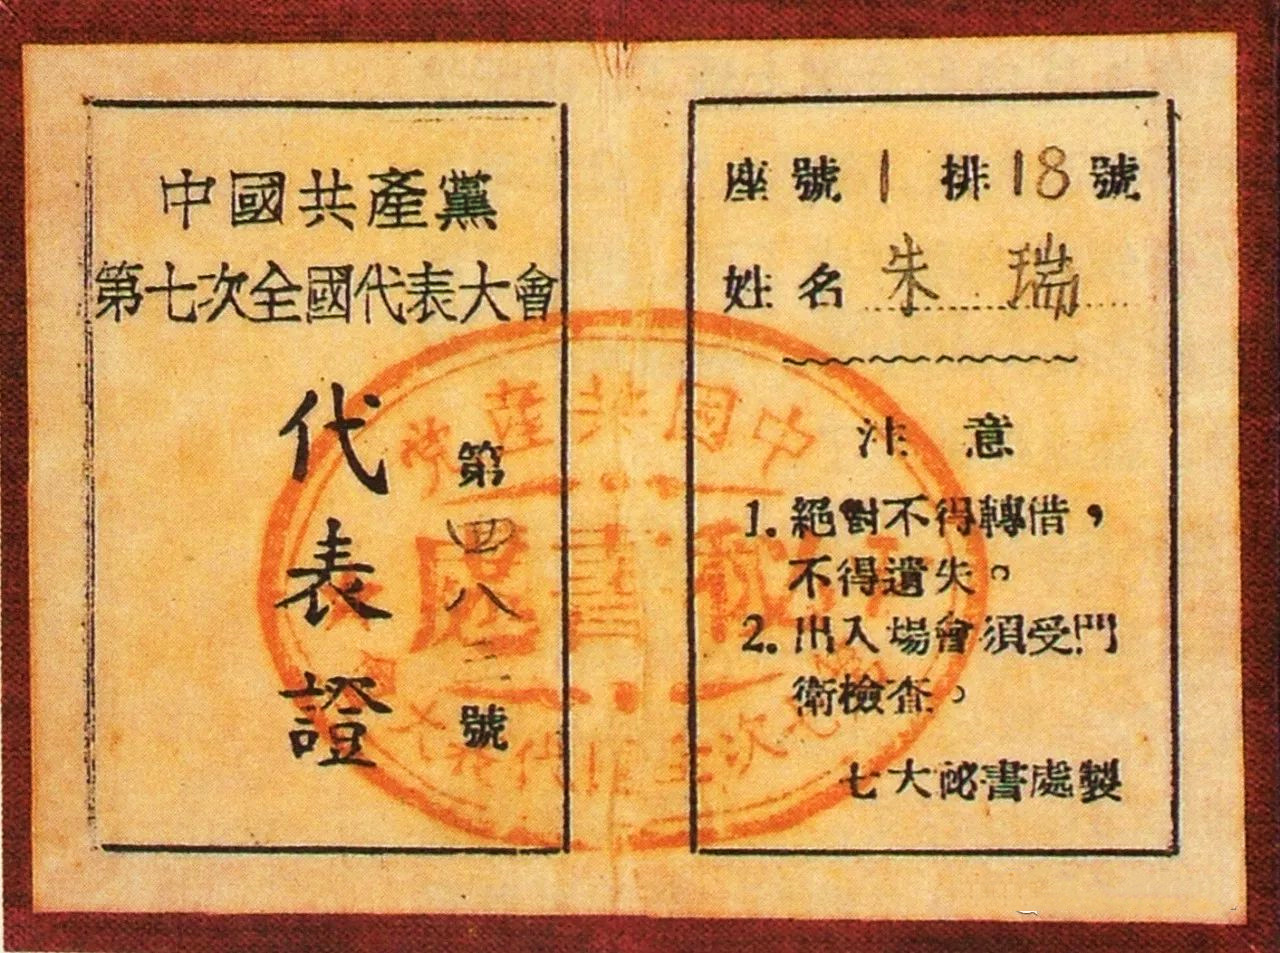 中國共產黨
第七次全國代表大會
代表證
第四八三號
座號 1 排 18 號
姓名 朱瑞
注意
1. 絕對不得轉借，
不得遺失。
2. 出入場會須受門
衛檢查。
七大秘書處製
中國共產党
秘書處